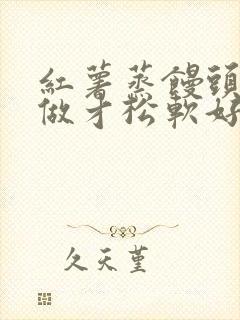 紅薯蒸饅頭
做才松軟好
久天堇